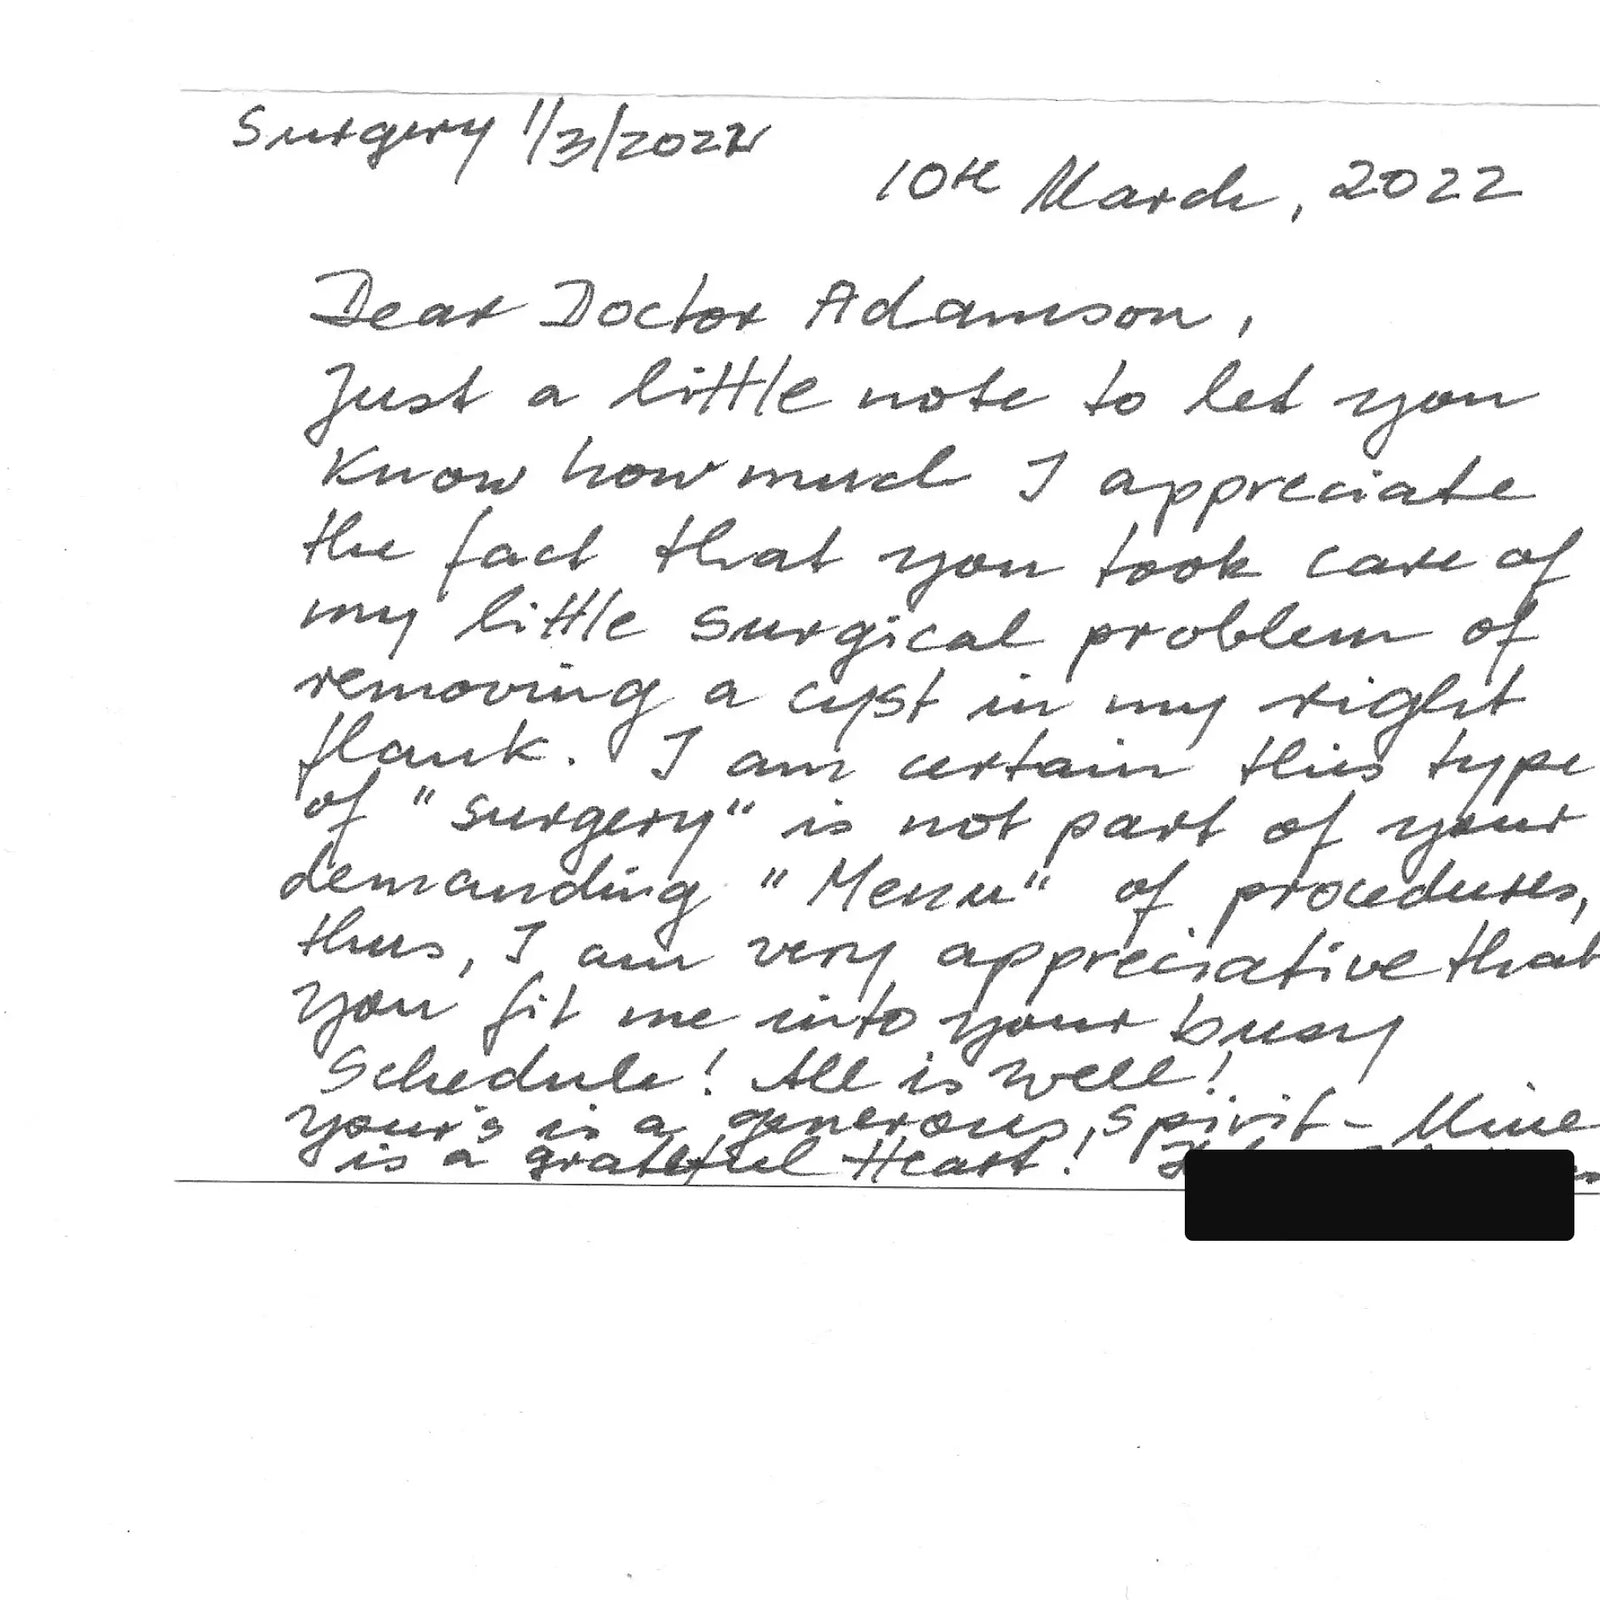 Surgery 1/3/2022
10th March, 2022
Dear Doctor Adamson,
Just a little note to let you
know how much I appreciate
the fact that you took care of
my little surgical problem of
removing a cyst in my right
flank. I am certain this type
of "surgery" is not part of your
demanding "Menu" of procedures,
thus, I am very appreciative that
you fit me into your busy
Schedule! All is well!
Your's is a generous, Spirit - Mine
is a grateful Heart!